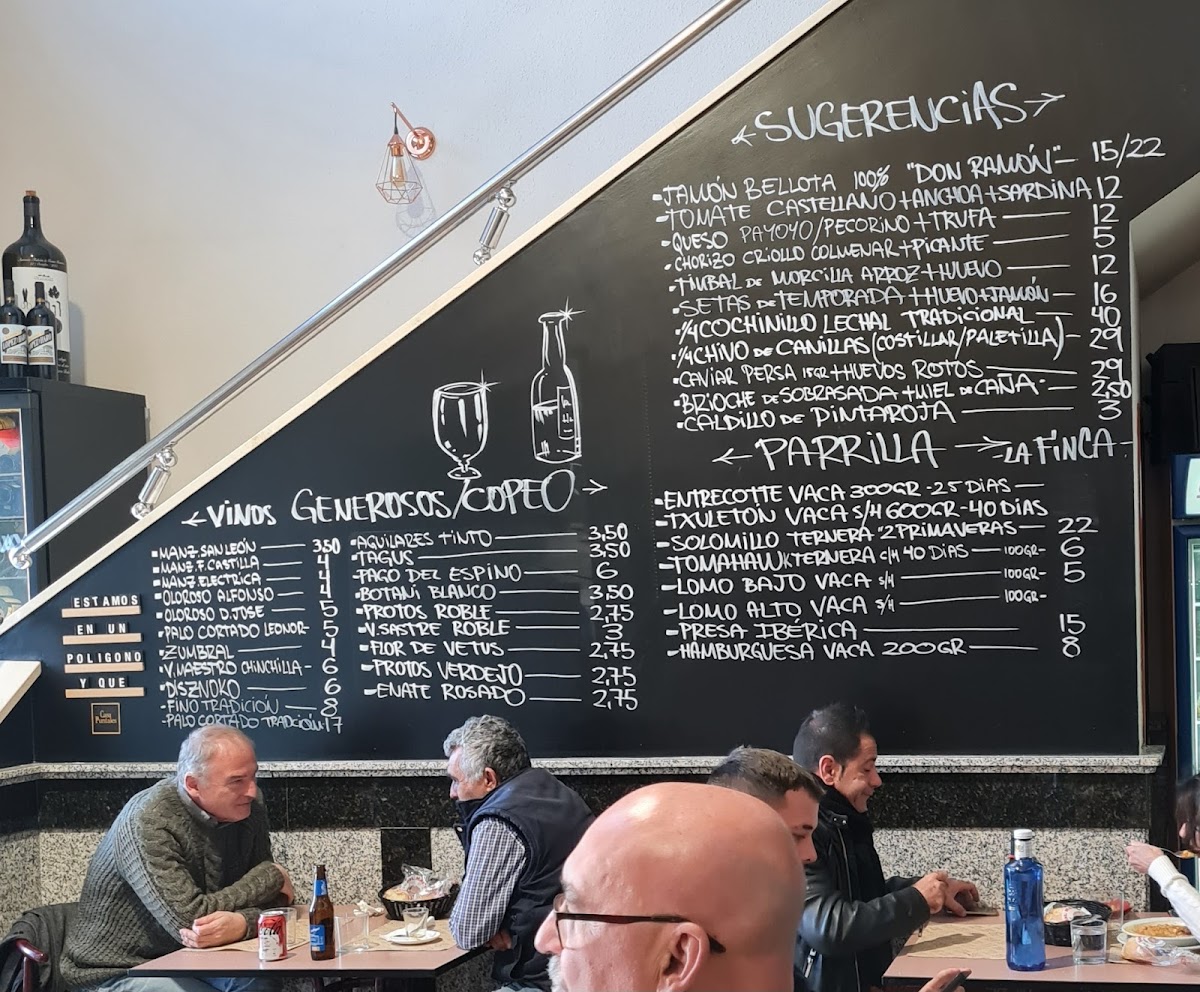 ←SUGERENCiAS→
-JAMÓN BELLOTA 100% "DON RAMÓN"— 15/22
-TOMATE CASTELLANO+ANCHOA+SARDINA 12
-QUESO PAYOYO/PECORINO+TRUFA — 12
-CHORIZO CRIOLLO COLMENAR+PICANTE — 5
-TIMBAL DE MORCILLA ARROZ+HUEVO — 12
-SETAS DE TEMPORADA+HUEVO+JAMÓN — 16
-1/4 COCHINILLO LECHAL TRADICIONAL — 40
-1/4 CHIVO DE CANILLAS (COSTILLAR/PALETILLA) — 29
-CAVIAR PERSA 15GR+HUEVOS ROTOS — 29
-BRIOCHE DE SOBRASADA+MIEL DE CAÑA - 2,50
-CALDILLO DE PINTARROJA — 3
←PARRILLA → LA FINCA-
-ENTRECOTTE VACA 300GR-25 DIAS —
-TXULETÓN VACA S/H 600GR-40 DIAS
-SOLOMILLO TERNERA "2 PRIMAVERAS — 22
-TOMAHAWK TERNERA C/H 40 DIAS — 100GR- 6
-LOMO BAJO VACA S/H — 100GR- 5
-LOMO ALTO VACA S/H — 100GR-
-PRESA IBÉRICA — 15
-HAMBURGUESA VACA 200GR — 8
←VINOS GENEROSOS/COPEO→
-MANZ. SAN LEÓN — 3,50
-MANZ. F. CASTILLA — 4
-MANZ. ELECTRICA — 4
-OLOROSO ALFONSO — 4
-OLOROSO D. JOSE — 5
-PALO CORTADO LEONOR- 5
-ZUMBRAL — 4
-V. MAESTRO CHINCHILLA- 6
-DISZNOKO — 6
-FINO TRADICIÓN — 8
-PALO CORTADO TRADICIÓN- 17
-AGUILARES TINTO — 3,50
-TAGUS — 3,50
-PAGO DEL ESPINO — 6
-BOTANI BLANCO — 3,50
-PROTOS ROBLE — 2,75
-V. SASTRE ROBLE — 3
-FLOR DE VETUS — 2,75
-PROTOS VERDEJO — 2,75
-ENATE ROSADO — 2,75
ESTAMOS
EN UN
POLIGONO
Y QUE